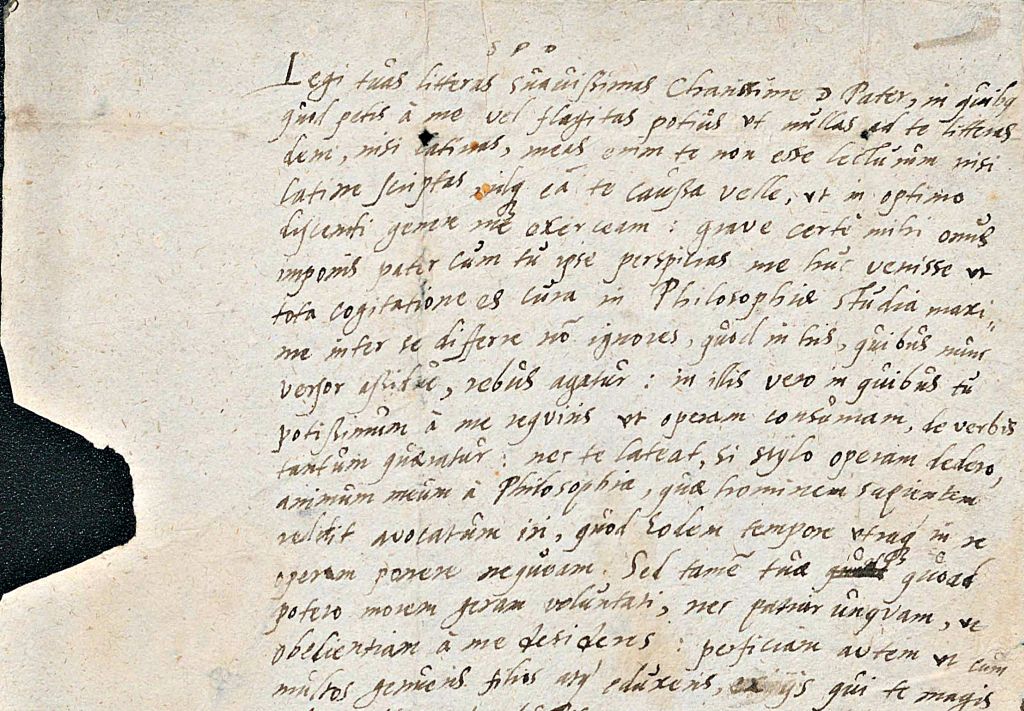 S P D
Legi tuas litteras suavissimas Charissime D Pater, in quibq
quod petis à me vel flagitas potius ut nullas ad te litteras
dem, nisi latinas, meas enim te non esse lecturum nisi
latine scriptas, eā te caussa velle, ut in optimo
discendi genere me exerceam : grave certe mihi onus
imponis pater cum tu ipse perspicias me huc venisse ut
tota cogitatione et cura in Philosophiæ studia maxi=
me inter se differre nō ignores, quod in his, quibus nunc
versor assidue, rebus agatur : in illis vero in quibus tu
potissimum à me requiris ut operam consumam, de verbis
tantum quæratur : nec te lateat, si stylo operam dedero,
animum meum à Philosophia, quæ hominem sapientem
reddit avocatum iri, quod eodem tempore utraq in re
operam ponere nequeam. Sed tamē tuæ quoad
potero morem geram voluntati, nec patiar unquam, ut
obedientiam à me desideres : perficiam autem ut cum
multos genueris filios atq eduxeris, ex ijs qui te magis